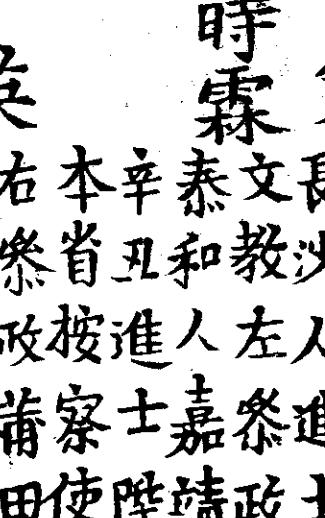 長沙人進士
時霖
文教左叅政
泰和人嘉靖
辛丑進士陞
本省按察使
右叅政莆田